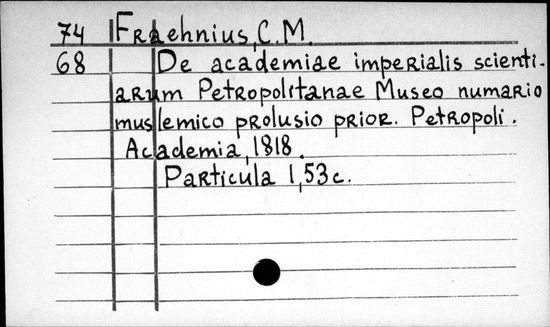 74 Fraehnius, C.M.
68 De academiae imperialis scienti-
arum Petropolitanae Museo numario
muslemico prolusio prior. Petropoli.
Academia, 1818.
Particula 1, 53c.